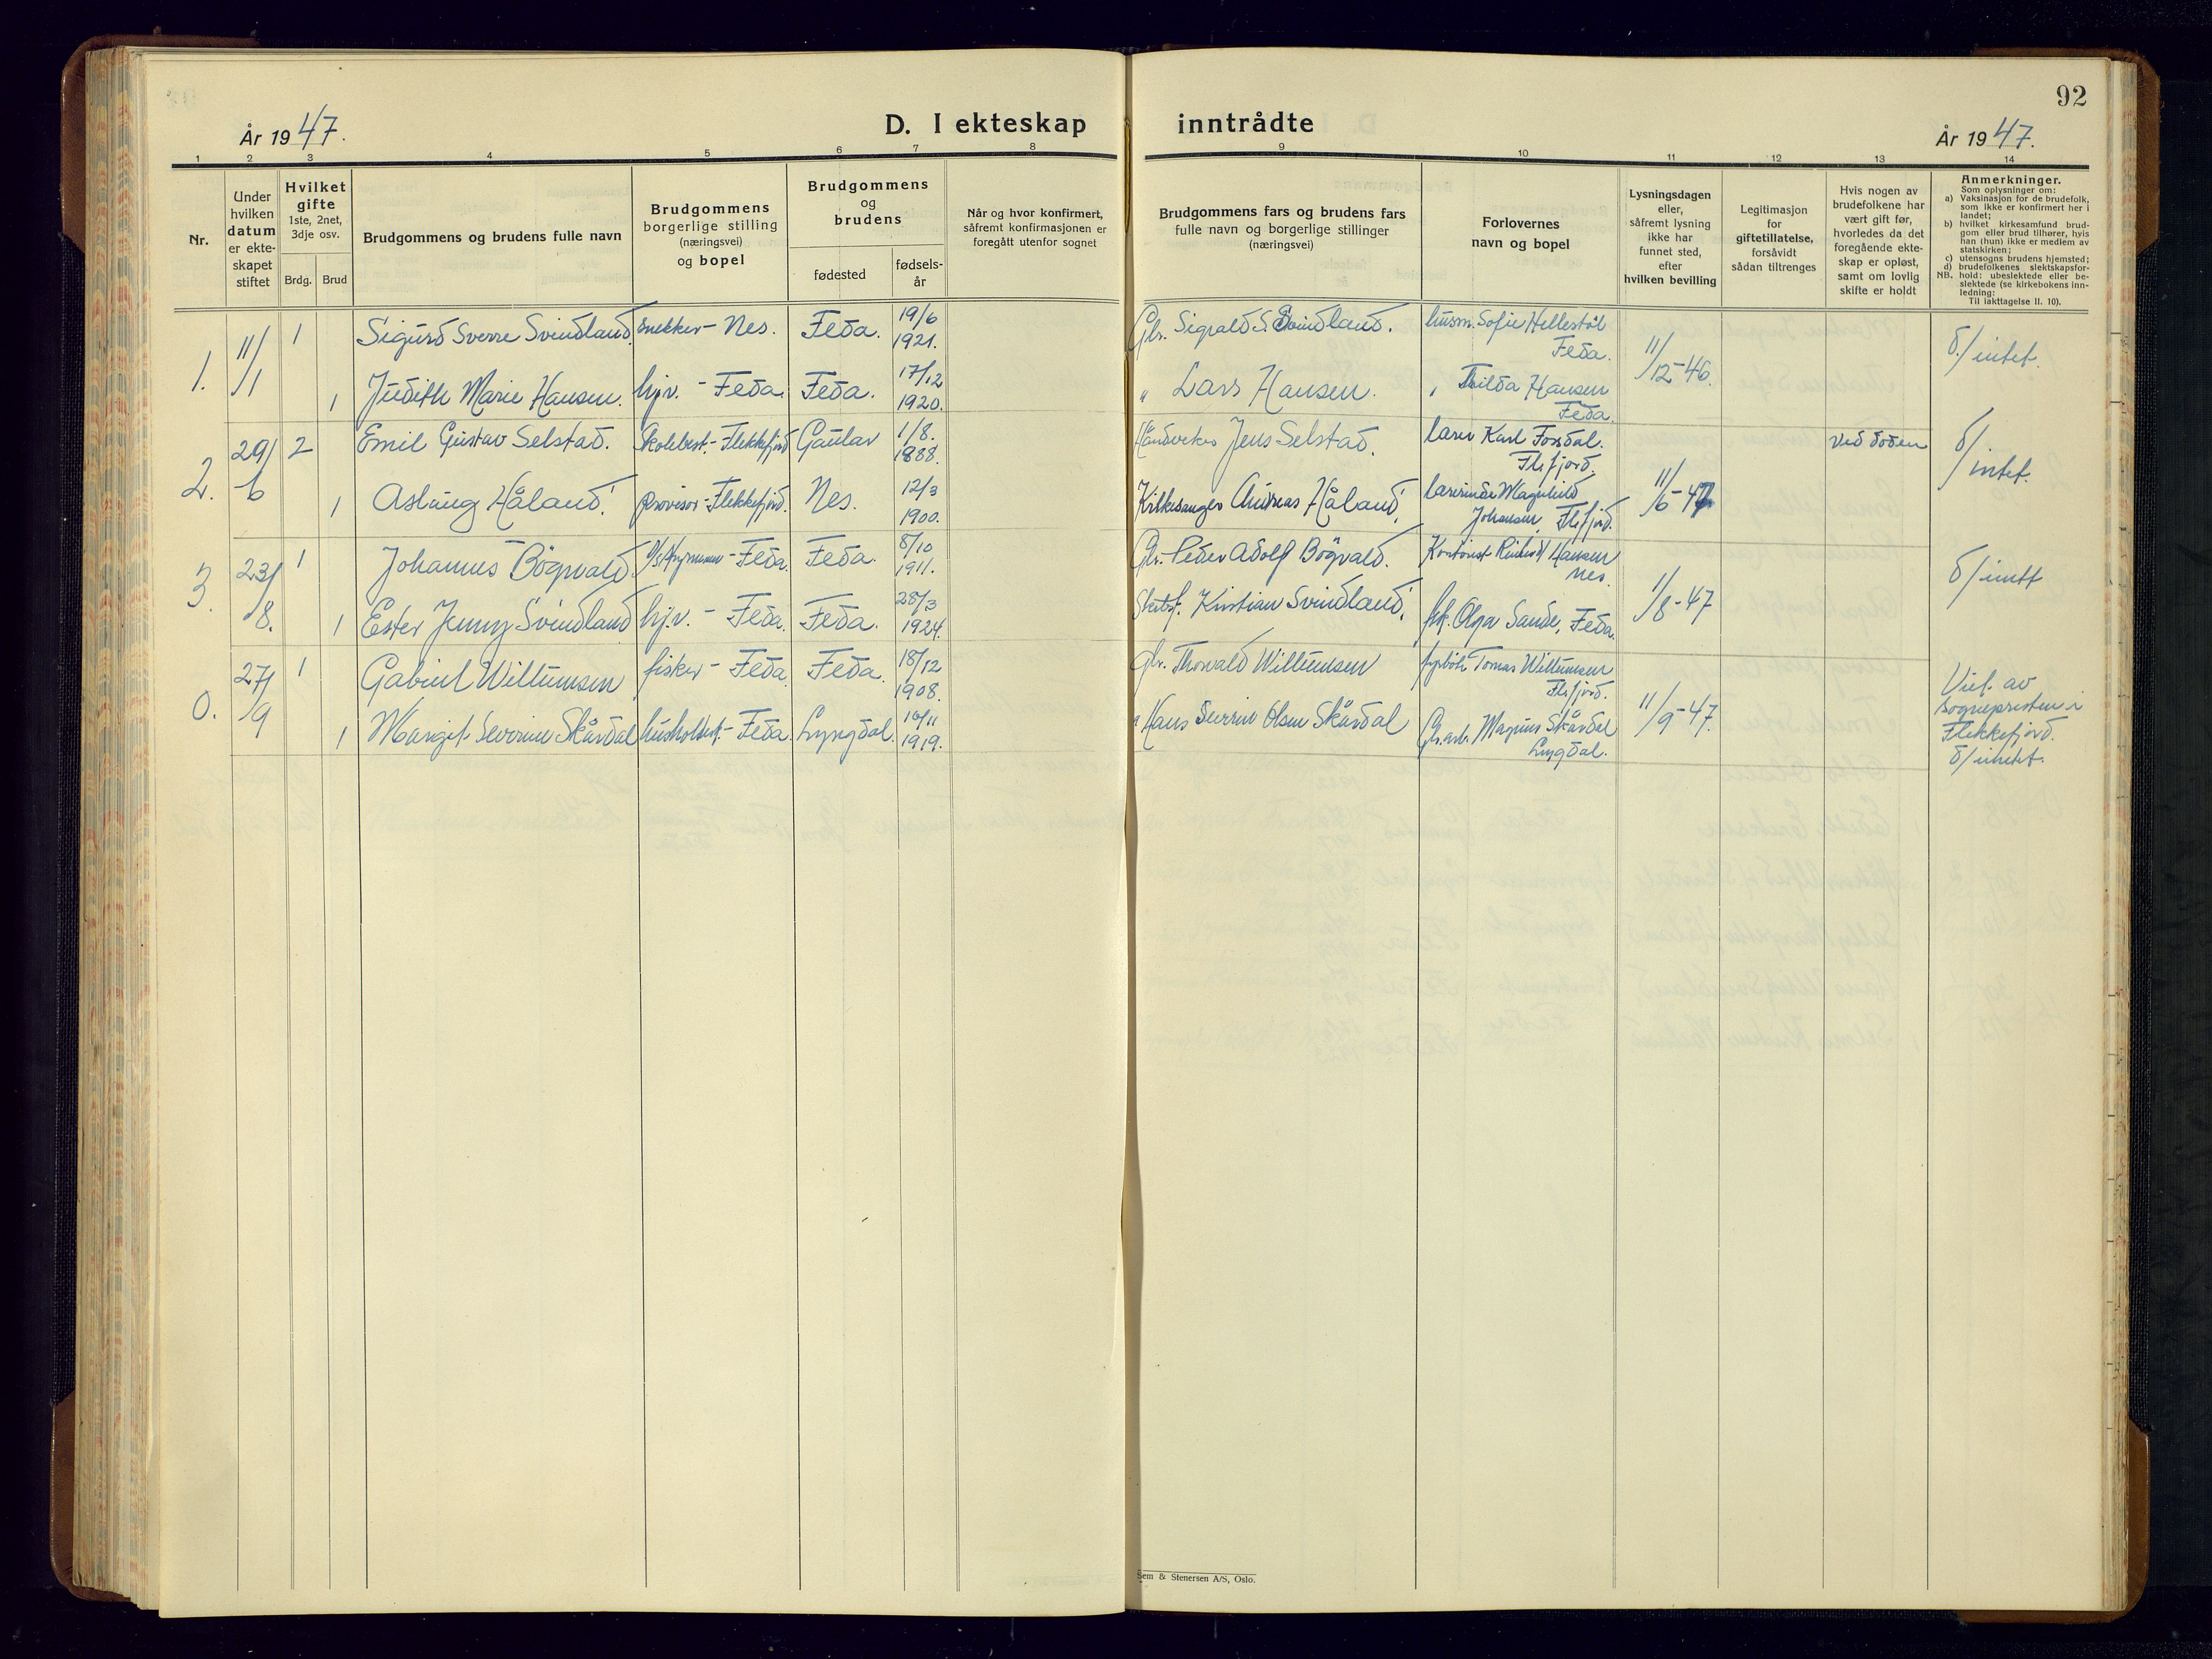 92
År 1947.
D. I ekteskap inntrådte
År 1947.
1 2 3 4 5 6 7 8 9 10 11 12 13 14
Nr.
Under
hvilken
datum
er ekte-
skapet
stiftet
Hvilket
gifte
1ste, 2net,
3dje osv.
Brdg. Brud
Brudgommens og brudens fulle navn
Brudgommens
borgerlige stilling
(næringsvei)
og bopel
Brudgommens
og
brudens
fødested
fødsels-
år
Når og hvor konfirmert,
såfremt konfirmasjonen er
foregått utenfor sognet
Brudgommens fars og brudens fars
fulle navn og borgerlige stillinger
(næringsvei)
Forlovernes
navn og bopel
Lysningsdagen
eller,
såfremt lysning
ikke har
funnet sted,
efter
hvilken bevilling
Legitimasjon
for
giftetillatelse,
forsåvidt
sådan tiltrenges
Hvis nogen av
brudefolkene har
vært gift før,
hvorledes da det
foregående ekte-
skap er opløst,
samt om lovlig
skifte er holdt
Anmerkninger.
Som oplysninger om:
a) Vaksinasjon for de brudefolk,
som ikke er konfirmert her i
landet;
b) hvilket kirkesamfund brud-
gom eller brud tilhører, hvis
han (hun) ikke er medlem av
statskirken;
c) utensogns brudens hjemsted;
d) brudefolkenes slektskapsfor-
NB. hold: ubeslektede eller be-
slektede (se kirkebokens inn-
ledning:
Til iakttagelse II. 10).
1. 11/1 1 Sigurd Sverre Svindland. snekker - Nes. Feda. 19/6 1921. Gbr. Sigvald S. Svindland. husm. Sofie Hellestøl Feda. 11/12-46. d/ intet.
1 Judith Marie Hansen. hjv. - Feda. Feda. 17/12 1920. " Lars Hansen. " Thilda Hansen Feda.
2. 29/6 2 Emil Gustav Selstad. Skolebest. - Flekkefjord Gaular 1/8. 1888. Håndverker Jens Selstad. lærer Karl Fossdal. Flkfjord. 11/6-47 ved døden d/ intet.
1 Aslaug Håland. provisor - Flekkefjord. Nes. 12/3 1900. Kirkesanger Andreas Håland. lærerinde Magnhild Johansen, Flkfjord.
3. 23/8. 1 Johannes Bøgvald. Feda. Feda. 8/10 1911. Gbr. Peder Adolf Bøgvald. Kontorist Hansen Nes. 1/8-47 d/ intet
1 Ester Jenny Svindland hj.v. - Feda. Feda. 28/3 1924. Kristian Svindland. frk. Olga Sande, Feda.
0. 27/9 1 Gabriel Willumsen fisker - Feda Feda. 18/12 1908. Gbr. Thorvald Willumsen Tomas Willumsen Flkfjord. 11/9-47. Viet av
sognepresten i
Flekkefjord.
d/ intet.
1 Margit Severine Skårdal husholdst. - Feda. Lyngdal. 10/11 1919. " Hans Severin Olsen Skårdal Magnus Skårdal Lyngdal.
Sem & Stenersen A/S, Oslo.